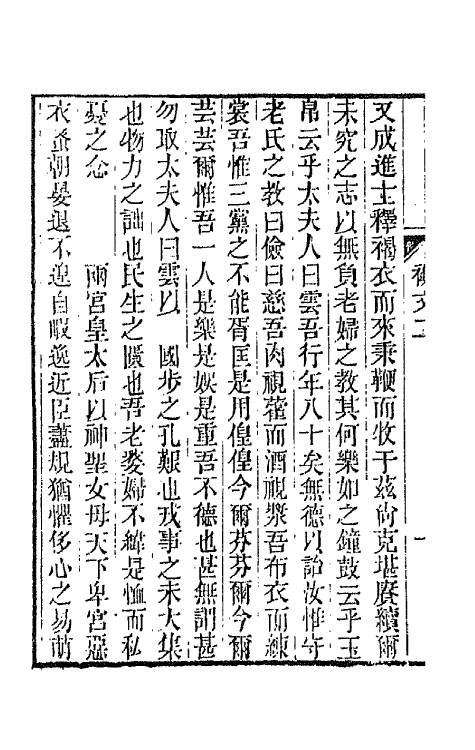 又成進士釋褐衣而來秉鞭而牧于茲尙克堪賡續爾
未究之志以無負老婦之教其何樂如之鐘鼓云乎玉
帛云乎太夫人曰雲吾行年八十矣無德以詒汝惟守
老氏之教曰儉曰慈吾肉視藿而酒視漿吾布衣而練
裳吾惟三黨之不能胥匡是用偟偟今爾芬芬爾今爾
芸芸爾惟吾一人是樂是娛是重吾不德也甚無謂甚
勿取太夫人曰雲以　國步之孔艱也戎事之未大集
也物力之詘也民生之匱也吾老嫠婦不緯是恤而私
憂之念　　兩宮皇太后以神聖女母天下卑宮惡
衣蚤朝晏退不遑自暇逸近臣藎規猶懼侈心之易萌
補文二
一